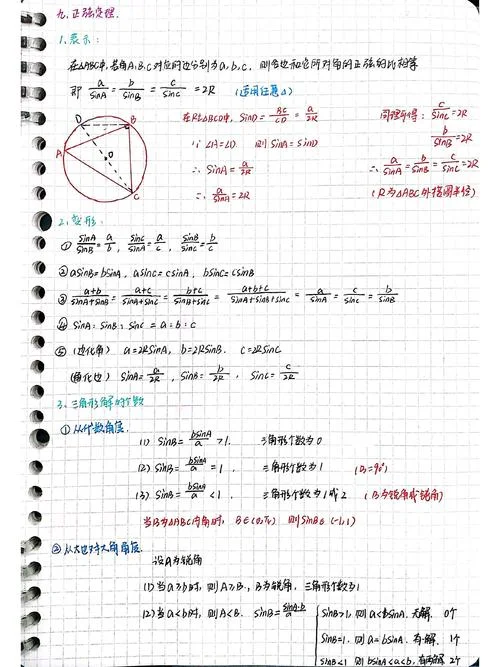 九. 正弦定理.
1. 表示:
在△ABC中, 若角A.B.C对应的边分别为a,b,c, 则各边和它所对角的正弦的比相等
即 a/sinA = b/sinB = c/sinC = 2R (适用任意△)
D
B
A
O
C
在Rt△BCD中, sinD = BC/CD = a/2R
∵ ∠A=∠D. 则 sinA=sinD
∴ sinA = a/2R
∴ a/sinA = 2R
同理可得: c/sinC = 2R
b/sinB = 2R
∴ a/sinA = b/sinB = c/sinC = 2R
(R为△ABC外接圆半径)
2. 变形:
① sinA/sinB = a/b, sinC/sinA = c/a, sinB/sinC = b/c
② asinB=bsinA, asinC=csinA, bsinC=csinB
③ a+b/sinA+sinB = a+c/sinA+sinC = b+c/sinB+sinC = a+b+c/sinA+sinB+sinC = a/sinA = c/sinC = b/sinB
④ sinA:sinB:sinC = a:b:c
⑤ (边化角) a=2RsinA, b=2RsinB. c=2RsinC
(角化边) sinA=a/2R, sinB=b/2R, sinC=c/2R
3. 三角形解的个数
① 从代数角度.
(1) sinB = bsinA/a >1. 三角形个数为0
(2) sinB = bsinA/a =1. 三角形个数为1 (B=90°)
(3) sinB = bsinA/a <1. 三角形个数为1或2
当B为△ABC内角时, B∈(0,π) 则sinB∈
② 从大边对大角角度.
设A为锐角
(1) 当a≥b时, 则A≥B., B为锐角, 三角形个数为1
(2) 当a<b时, 则A<B. sinB = sinA·b/a
sinB>1, 则a<bsinA. 无解. 0个
sinB=1, 则a=bsinA. 有一解. 1个
sinB<1, 则bsinA<a<b, 有两解 2个